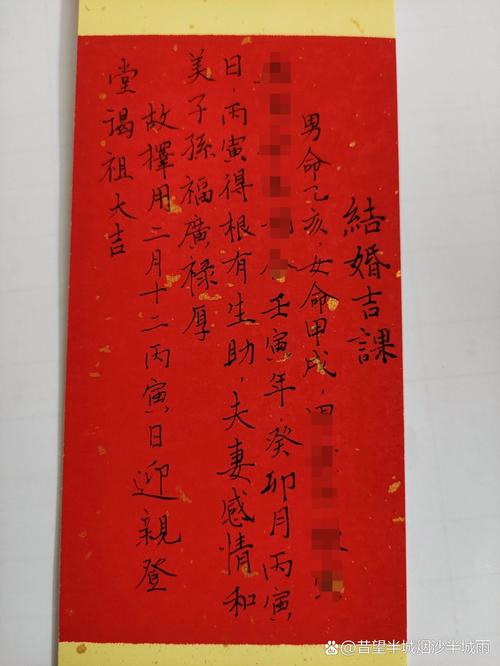 結婚吉課
男命乙亥，女命甲戌，四
壬寅年，癸卯月丙寅
日，丙寅得根有生助，夫妻感情和
美子孫福廣祿厚
故擇用二月十二丙寅日迎親登
堂謁祖大吉
昔望半城烟沙半城雨